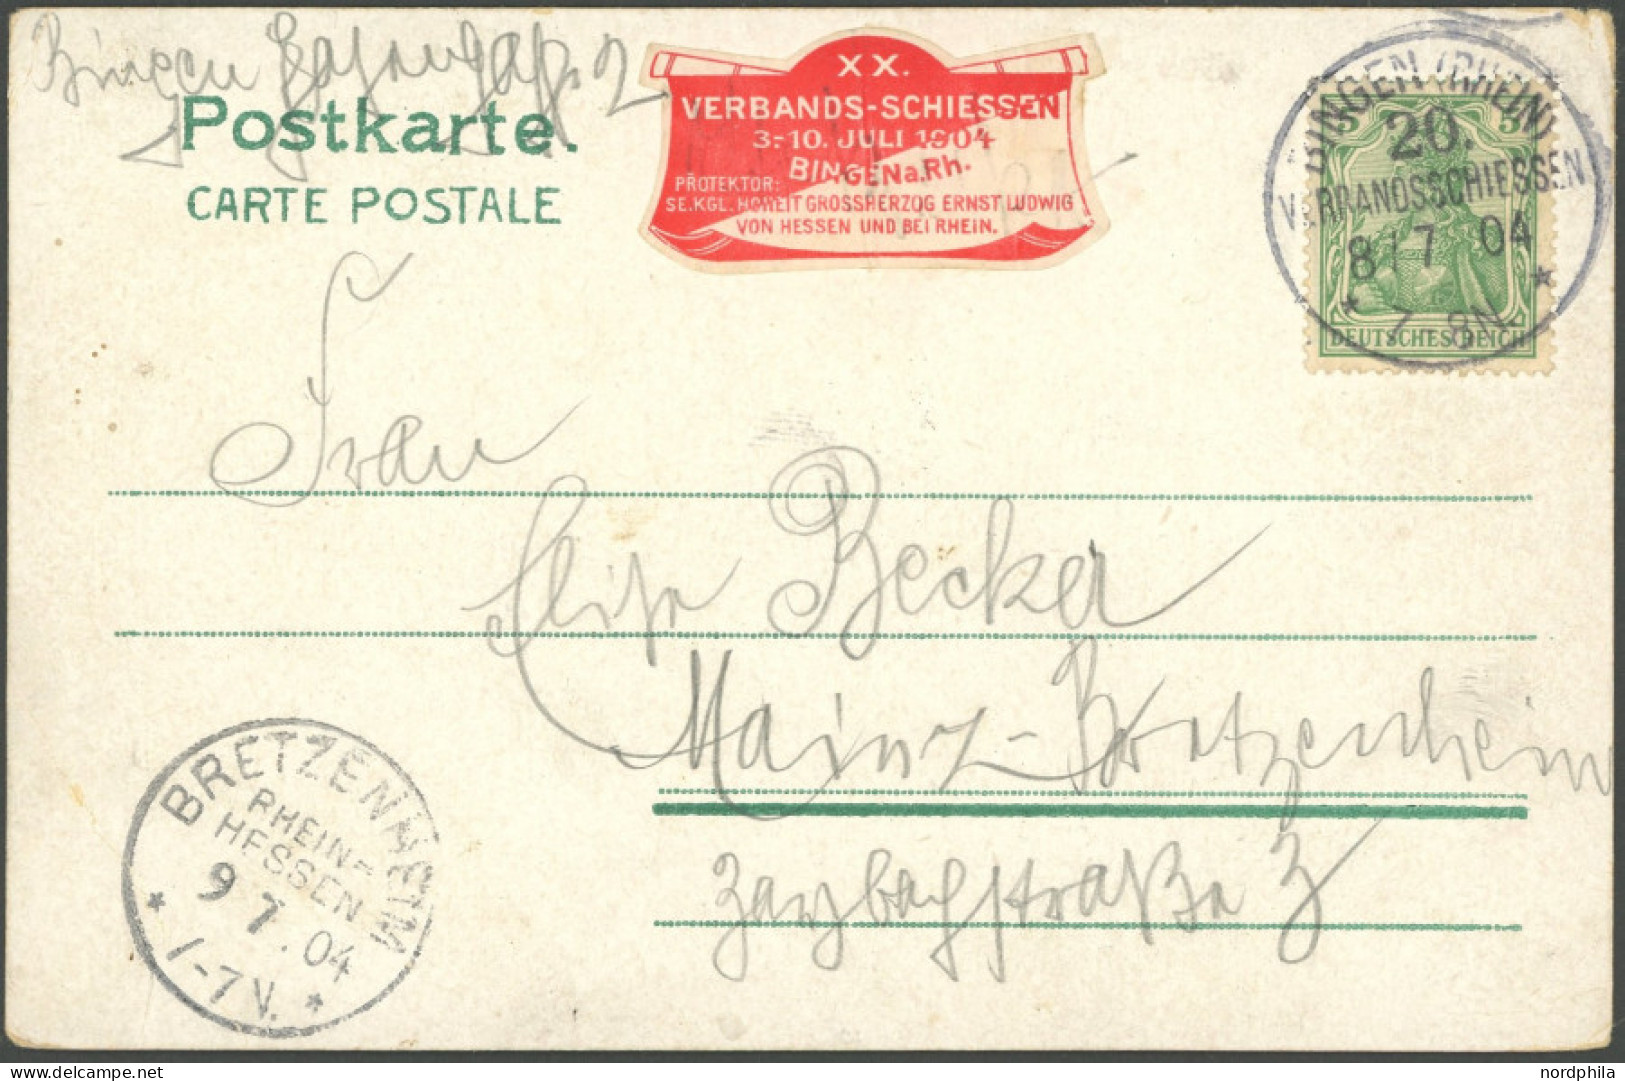 Bingen 2
Postkarte.
CARTE POSTALE
XX.
VERBANDS-SCHIESSEN
3-10. JULI 1904
BINGEN a. Rh.
PROTEKTOR:
SE. KGL. HOHEIT GROSSHERZOG ERNST LUDWIG
VON HESSEN UND BEI RHEIN.
BINGEN (RHEIN)
20.
VERBANDSSCHIESSEN
8/7 04
* 7-8N. *
5 5
DEUTSCHES REICH
Frau
Elise Becker
Mainz-Bretzenheim
BRETZENHEIM
RHEIN=
HESSEN
9 7. 04
* 1-7 V. *
nordphila